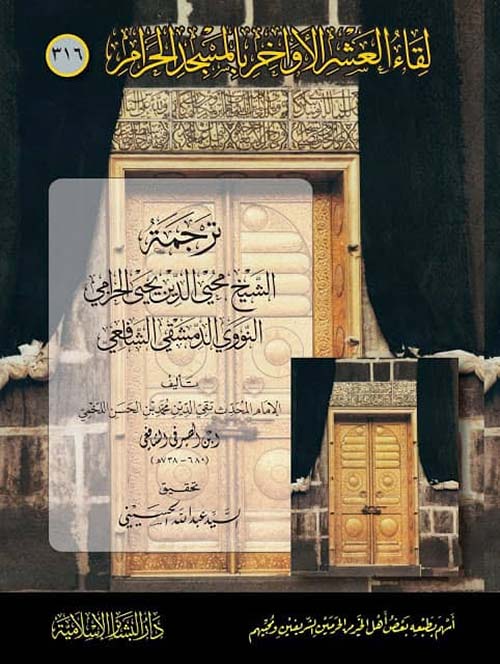 لقاء العشر الأواخر بالمسجد الحرام
٣١٦
ترجمة
الشيخ محيي الدين يحيى الحزامي
النووي الدمشقي الشافعي
تأليف
الإمام المحدث تقي الدين محمد بن الحسن اللخمي
ابن الصيرفي الشافعي
(٦٨٠ - ٧٣٨هـ)
تحقيق
السيد عبد الله الحسيني
أسهم بطبعه بعض أهل الخير من الحرمين الشريفين ومحبيهم
دار البشائر الإسلامية